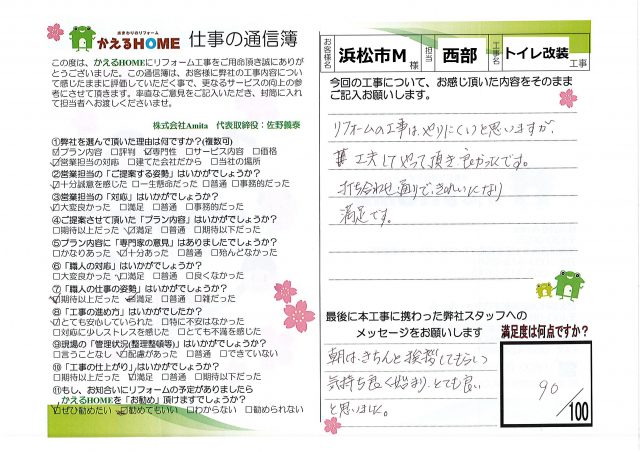 水まわりのリフォーム
かえるHOME 仕事の通信簿
この度は、かえるHOMEにリフォーム工事をご用命頂き誠にありが
とうございました。この通信簿は、お客様に弊社の工事内容につい
て感じたままに評価していただく事で、更なるサービスの向上の参
考にさせて頂きます。率直なご意見をご記入いただき、封筒に入れ
て担当者へお渡しくださいませ。
株式会社Amita 代表取締役:佐野義泰
①弊社を選んで頂いた理由は何ですか?(複数可)
☑プラン内容 □評判 ☑専門性 □サービス内容 □価格
☑営業担当の対応 □建てた会社だから □当社の場所
②営業担当の「ご提案する姿勢」はいかがでしょうか?
☑十分誠意を感じた □一生懸命だった □普通 □事務的だった
③営業担当の「対応」はいかがでしょうか?
☑大変良かった □満足 □普通 □事務的だった
④ご提案させて頂いた「プラン内容」はいかがでしょうか?
□期待以上だった ☑満足 □普通 □期待以下だった
⑤プラン内容に「専門家の意見」はありましたでしょうか?
□かなりあった ☑十分あった □普通 □殆んどなかった
⑥「職人の対応」はいかがでしょうか?
□大変良かった ☑満足 □普通 □良くなかった
⑦「職人の仕事の姿勢」はいかがでしょうか?
☑期待以上だった ☑満足 □普通 □雑だった
⑧「工事の進め方」はいかがでしたか?
☑とても安心していられた □特に不安はなかった
□対応に少しストレスを感じた □とても不満を感じた
⑨現場の「管理状況(整理整頓等)」はいかがでしょうか?
□言うことなし ☑配慮があった □できていない
⑩「工事の仕上がり」はいかがでしょうか?
□期待以上だった ☑満足 □普通 □期待以下だった
⑪もし、お知合いにリフォームの予定がありましたら
かえるHOMEを「お勧め」頂けますでしょうか?
☑ぜひ勧めたい ☑勧めてもいい □わからない □勧められない
お客様名 浜松市M 様 担当 西部 工事名 トイレ改装 工事
今回の工事について、お感じ頂いた内容をそのまま
ご記入お願いします。
リフォームの工事は、やりにくいと思いますが、
工夫してやって頂き良かったです。
打ち合わせ通りで、きれいになり
満足です。
最後に本工事に携わった弊社スタッフへの
メッセージをお願いします
朝は、きちんと挨拶してもらい
気持ち良く始まり、とても良い
と思いました。
満足度は何点ですか?
90
/100